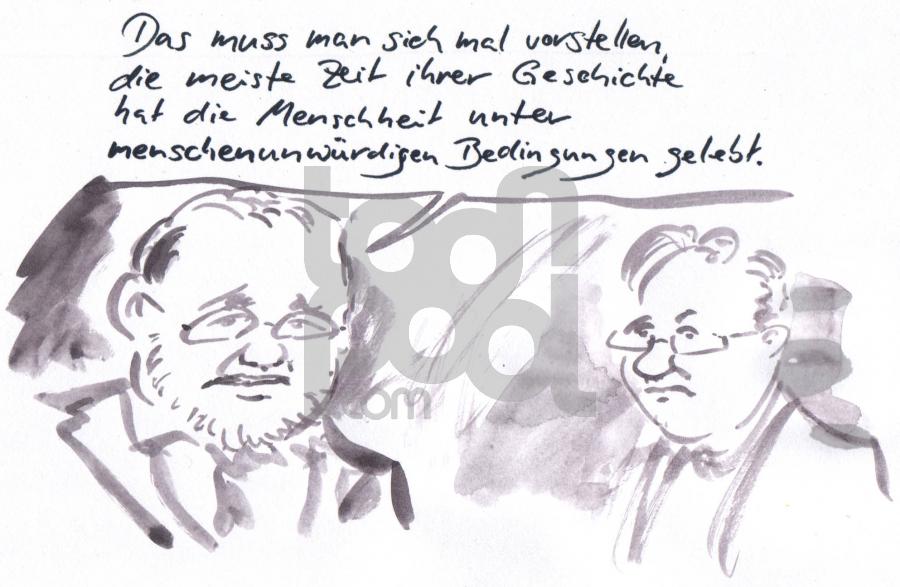 Das muss man sich mal vorstellen,
die meiste Zeit ihrer Geschichte
hat die Menschheit unter
menschenunwürdigen Bedingungen gelebt.
toonpool
.com